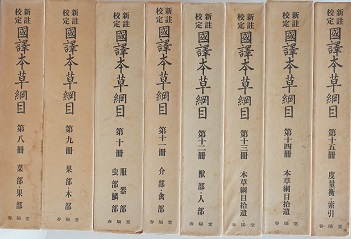 新註校定 國譯本草綱目 第十五冊 度量衡・索引 春陽堂
新註校定 國譯本草綱目 第十四冊 本草綱目拾遺 春陽堂
新註校定 國譯本草綱目 第十三冊 本草綱目拾遺 春陽堂
新註校定 國譯本草綱目 第十二冊 獸部・人部 春陽堂
新註校定 國譯本草綱目 第十一冊 介部・禽部 春陽堂
新註校定 國譯本草綱目 第十冊 服器部 虫部・鱗部 春陽堂
新註校定 國譯本草綱目 第九冊 果部木部 春陽堂
新註校定 國譯本草綱目 第八冊 菜部果部 春陽堂